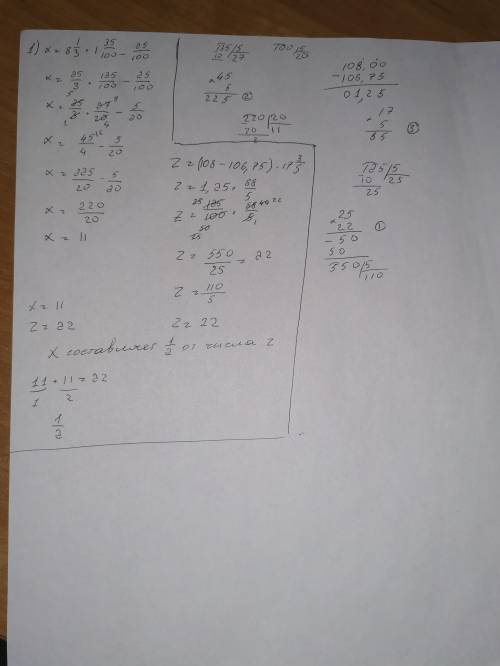 1) x = 8 1/3 · 1 35/100 - 25/100
x = 25/3 · 135/100 - 25/100
x = 25/3 · 27/20 - 5/20
x = 45/4 - 5/20
x = 225/20 - 5/20
x = 220/20
x = 11
x = 11
z = 22
x составляет 1/2 от числа z
11/1 · 11/2 = 22
1/2
135 5
10 27
100 5
20
45
5
225 ②
220 20
20 11
2
z = (108 - 106,75) · 17 3/5
z = 1,25 · 88/5
z = 550/25 = 22
z = 110/5
z = 22
108,00
- 106,75
01,25
17
5
85 ③
125 5
10 25
25
25
22 ①
50
50
550 5
110